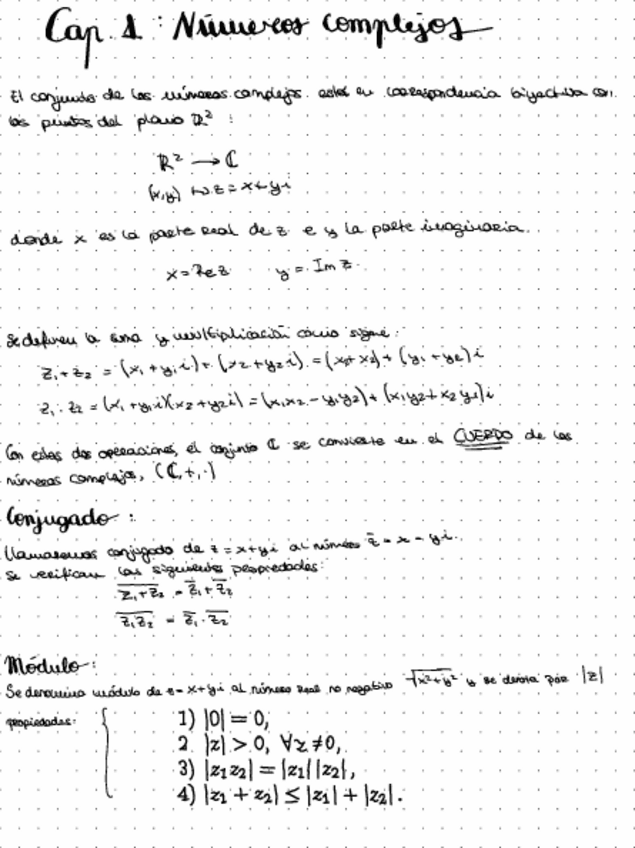 Cap. 1: Números complejos
El conjunto de los números complejos está en correspondencia biyectiva con
los puntos del plano ℝ² :
ℝ² → ℂ
(x,y) ↦ z = x + yi
donde x es la parte real de z e y la parte imaginaria.
x = Re z    y = Im z.
Se definen la suma y multiplicación como sigue:
z₁ + z₂ = (x₁ + y₁i) + (x₂ + y₂i) = (x₁ + x₂) + (y₁ + y₂)i
z₁ · z₂ = (x₁ + y₁i)(x₂ + y₂i) = (x₁x₂ - y₁y₂) + (x₁y₂ + x₂y₁)i
Con estas dos operaciones, el conjunto ℂ se convierte en el CUERPO de los
números complejos, (ℂ, +, ·)
Conjugado :
Llamaremos conjugado de z = x + yi al número z̅ = x - yi.
Se verifican las siguientes propiedades:
\overline{z₁ + z₂} = z̅₁ + z̅₂
\overline{z₁z₂} = z̅₁ · z̅₂
Módulo :
Se denomina módulo de z = x + yi al número real no negativo √(x² + y²) y se denota por |z|
propiedades:
1) |0| = 0,
2 |z| > 0, ∀z ≠ 0,
3) |z₁z₂| = |z₁||z₂|,
4) |z₁ + z₂| ≤ |z₁| + |z₂|.